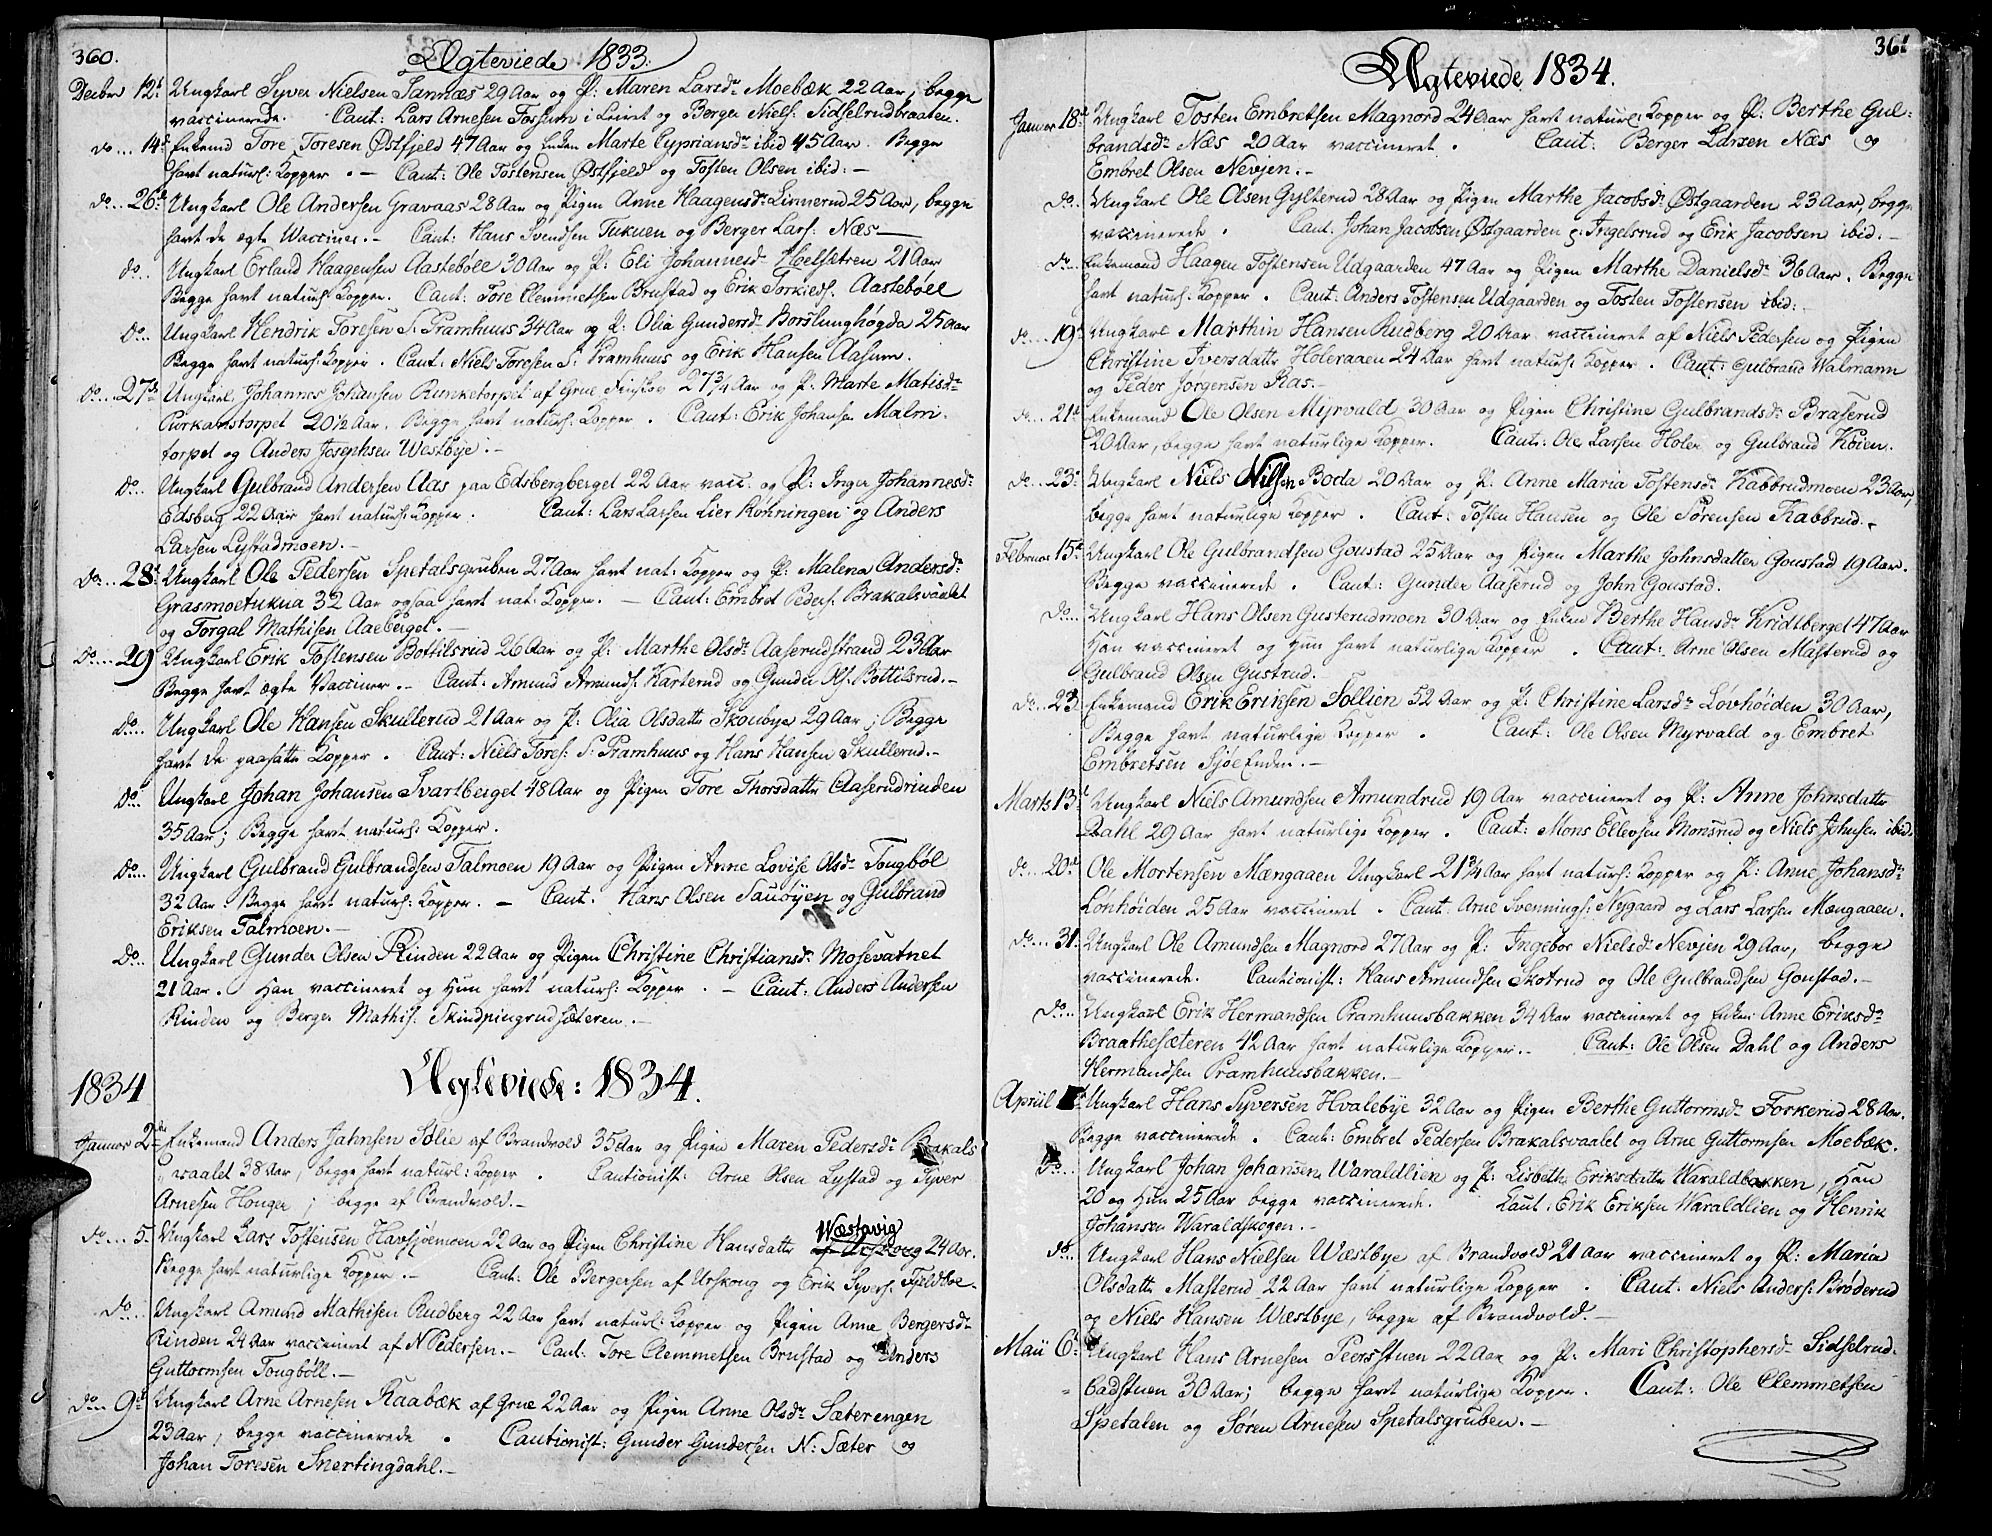 360.
Ægteviede 1833.
Decbr 12t Ungkarl Syver Nielsen Sannæs 29 Aar og P: Maren Larsdr Moebæk 22 Aar, begge
vaccinerede. Caut: Lars Arnesen Fossum i Leiret og Berger Niels: Sidselrudbraaten.
do... 14d Enkemd Tore Toresen Østfjeld 47 Aar og Enken Marte Cypriansdr ibid 45 Aar. Begge
havt naturl: Kopper. — Caut: Ole Tostensen Østfjeld og Tosten Olsen ibid: —
do... 26d Ungkarl Ole Andersen Gravaas 28 Aar og Pigen Anne Haagensdr Linnerud 25 Aar, begge
havt de ægte Vacciner. — Caut: Hans Svendsen Tukuen og Berger Lars: Næs —
do... Ungkarl Erland Haagensen Aastebøle 30 Aar og P: Eli Johannesdr Hoelsætren 21 Aar
Begge havt naturl: Kopper. Caut: Tore Clemmetsen Brustad og Erik Torkieds: Aastebøll
do... Ungkarl Hendrik Toresen S: Pramhuus 34 Aar og P: Olia Gundersdr Børslunghøgda 25 Aar
Begge havt naturl: Kopper. Caut: Niels Toresen S: Pramhuus og Erik Hansen Aasum.
do... 27de Ungkarl Johannes Johansen Runketorpet af Grue Finskov 27¾ Aar og P: Marte Matisdr
Purkamstorpet 20½ Aar. Begge havt naturl: Kopper. Caut: Erik Johansen Malm:
torpet og Anders Josephsen Westbye. —
do... Ungkarl Gulbrand Andersen Aas paa Edsbergberget 22 Aar vacc. og P: Inger Johannesdr
Edsberg 22 Aar havt naturl: Kopper. Caut: Lars Larsen Lier Kønningen og Anders
Larsen Lystadmoen. —
do... 28d Ungkarl Ole Pedersen Spetalsgruben 27 Aar havt nat: Kopper og P: Malena Andersdr
Grasmoetukua 32 Aar ogsaa havt nat: Kopper. — Caut: Embret Peders: Brakalsvaalet
og Torgal Mathisen Aaeberget. —
do... 29 Ungkarl Erik Tostensen Bottilsrud 26 Aar og P: Marthe Olsdr Aaserudstrand 23 Aar
Begge havt ægte Vacciner. — Caut: Amund Amunds: Karterud og Gunder Ols: Bottilsrud. —
do... Ungkarl Ole Hansen Skullerud 21 Aar og P: Olia Olsdattr Skoubye 29 Aar; Begge
havt de paasatte Kopper. Caut: Niels Tores: S: Pramhuus og Hans Hansen Skullerud. —
do... Ungkarl Johan Johansen Svartberget 48 Aar og Pigen Tore Thorsdattr Aaserudrinden
35 Aar; Begge havt naturl: Kopper.
do... Ungkarl Gulbrand Gulbrandsen Talmoen 19 Aar og Pigen Anne Lovise Olsdr Tougbøl
32 Aar. Begge havt naturl: Kopper. — Caut. Hans Olsen Sauøyen og Gulbrand
Eriksen Talmoen. —
do... Ungkarl Gunder Olsen Rinden 22 Aar og Pigen Christine Christiansdr Mosevatnet
21 Aar. Han vaccineret og Hun havt naturl: Kopper. — Caut: Anders Andersen
Rinden og Berger Mathis: Skindpungrudsæteren. —
1834 Ægteviede: 1834.
Januar 2de Enkemand Anders Jahnsen Solie af Brandvold 35 Aar og Pigen Maren Pedersdr Brakals
vaalet 38 Aar, begge havt naturl: Kopper. Cautionist: Arne Olsen Lystad og Syver
Arnesen Houger; begge af Brandvold. —
do... 5. Ungkarl Lars Tostensen Havsjøemoen 22 Aar og Pigen Christine Hansdattr Wæstavig 24 Aar.
Begge havt naturlige Kopper. — Caut: Ole Bergersen af Urskoug og Erik Syvers: Tjeldboe —
do... Ungkarl Amund Mathisen Rudberg 22 Aar havt naturl: Kopper og Pigen Anne Bergersdr
Rinden 24 Aar vaccineret af N Pedersen. — Caut: Tore Clemmetsen Brustad og Anders
Guttormsen Tougbøll. —
do... 9d Ungkarl Arne Arnesen Kaabæk af Grue 22 Aar og Pigen Anne Olsdr Sæterengen
23 Aar, begge vaccinerede. Cautionist: Gunder Gundersen N: Sæter og
Johan Toresen Snertingdahl. —
361
Ægteviede 1834.
Januar 18d Ungkarl Tosten Embretsen Magnord 24 Aar havt naturl: Kopper og P: Berthe Gul:
brandsdr Næs 20 Aar vaccineret. Caut: Berger Larsen Næs og
Embret Olsen Nevjen. —
do... Ungkarl Ole Olsen Gylterud 28 Aar og Pigen Marthe Jacobsdr Østgaarden 23 Aar, begge
vaccinerede. Caut. Johan Jacobsen Østgaarden i Ingelsrud og Erik Jacobsen ibid. —
do... Enkemand Haagen Tostensen Udgaarden 47 Aar og Pigen Marthe Danielsdr 36 Aar. Begge
havt naturl: Kopper. Caut: Anders Tostensen Udgaarden og Tosten Tostensen ibid: —
do... 19d Ungkarl Marthin Hansen Rudberg 20 Aar vaccineret af Niels Pedersen og Pigen
Christine Iversdattr Holeraaen 24 Aar havt naturl: Kopper. Caut: Gulbrand Walmann
og Peder Jørgensen Ras. —
do... 21d Enkemand Ole Olsen Myrvald 30 Aar og Pigen Christine Gulbrandsdr Braserud
20 Aar, begge havt naturlige Kopper. Caut: Ole Larsen Holen og Gulbrand Køien.
do... 23d Ungkarl Niels Nilsen Boda 20 Aar og P. Anne Maria Tostensdr Kabbrudmoen 23 Aar,
begge havt naturlige Kopper. Caut: Tosten Hansen og Ole Sørensen Kabbrud. —
Februar 15d Ungkarl Ole Gulbrandsen Goustad 25 Aar og Pigen Marthe Johnsdatter Goustad 19 Aar.
Begge vaccinerede. Caut: Gunder Aaserud og John Goustad.
do... Ungkarl Hans Olsen Gusterudmoen 30 Aar og Enken Berthe Hansdr Kridtberget 47 Aar
Han vaccineret og Hun havt naturlige Kopper. Caut: Arne Olsen Masterud og
Gulbrand Olsen Gustrud.
do... 23 Enkemand Erik Eriksen Follien 52 Aar og P: Christine Larsdr Løvhøiden 30 Aar,
Begge havt naturlige Kopper. Caut: Ole Olsen Myrvald og Embret
Embretsen Sjøeenden. —
Marts 13d Ungkarl Niels Amundsen Amundrud 19 Aar vaccineret og P: Anne Johnsdattr
Dahl 29 Aar havt naturlige Kopper. Caut: Mons Ellevsen Monsrud og Niels Johnsen ibid.
do... 20d Ole Mortensen Mængaaen Ungkarl 21¾ Aar havt naturl: Kopper og P: Anne Johansdr
Lønhøiden 25 Aar vaccineret. Caut: Arne Svennings: Nygaard og Lars Larsen Mængaaen.
do... 31. Ungkarl Ole Amundsen Magnord 27 Aar og P: Ingebor Nielsdr Nevjen 29 Aar, begge
vaccinerede. Cautionist: Hans Amundsen Skotrud og Ole Gulbrandsen Goustad. —
do... Ungkarl Erik Hermandsen Pramhuusbakken 34 Aar vaccineret og Enken Anne Eriksdr
Braathesæteren 42 Aar havt naturlige Kopper. — Caut: Ole Olsen Dahl og Anders
Hermandsen Pramhuusbakken. —
Apriil Ungkarl Hans Syversen Hvalebye 32 Aar og Pigen Berthe Guttormsdr Foskerud 28 Aar.
Begge vaccinerede. Caut: Embret Pedersen Brakalsvaalet og Arne Guttormsen Moebæk.
do... Ungkarl Johan Johansen Waraldlien og P: Lisbeth Eriksdattr Waraldbakken, Han
20 og Hun 25 Aar begge vaccinerede. Caut: Erik Eriksen Waraldlien og Henrik
Johansen Waraldskogen. —
do... Ungkarl Hans Nielsen Wæstbye af Brandvold 21 Aar vaccineret og P: Maria
Olsdattr Masterud 22 Aar havt naturlige Kopper. Caut: Niels Anders: Brøderud
og Niels Hansen Wæstbye, begge af Brandvold. —
Maii 6d Ungkarl Hans Arnesen Peersstuen 22 Aar og P. Mari Christophersdr Sidselrud:
badstuen 30 Aar; begge havt naturlige Kopper. Caut: Ole Clemmetsen
Spetalen og Søren Arnesen Spetalsgruben. —